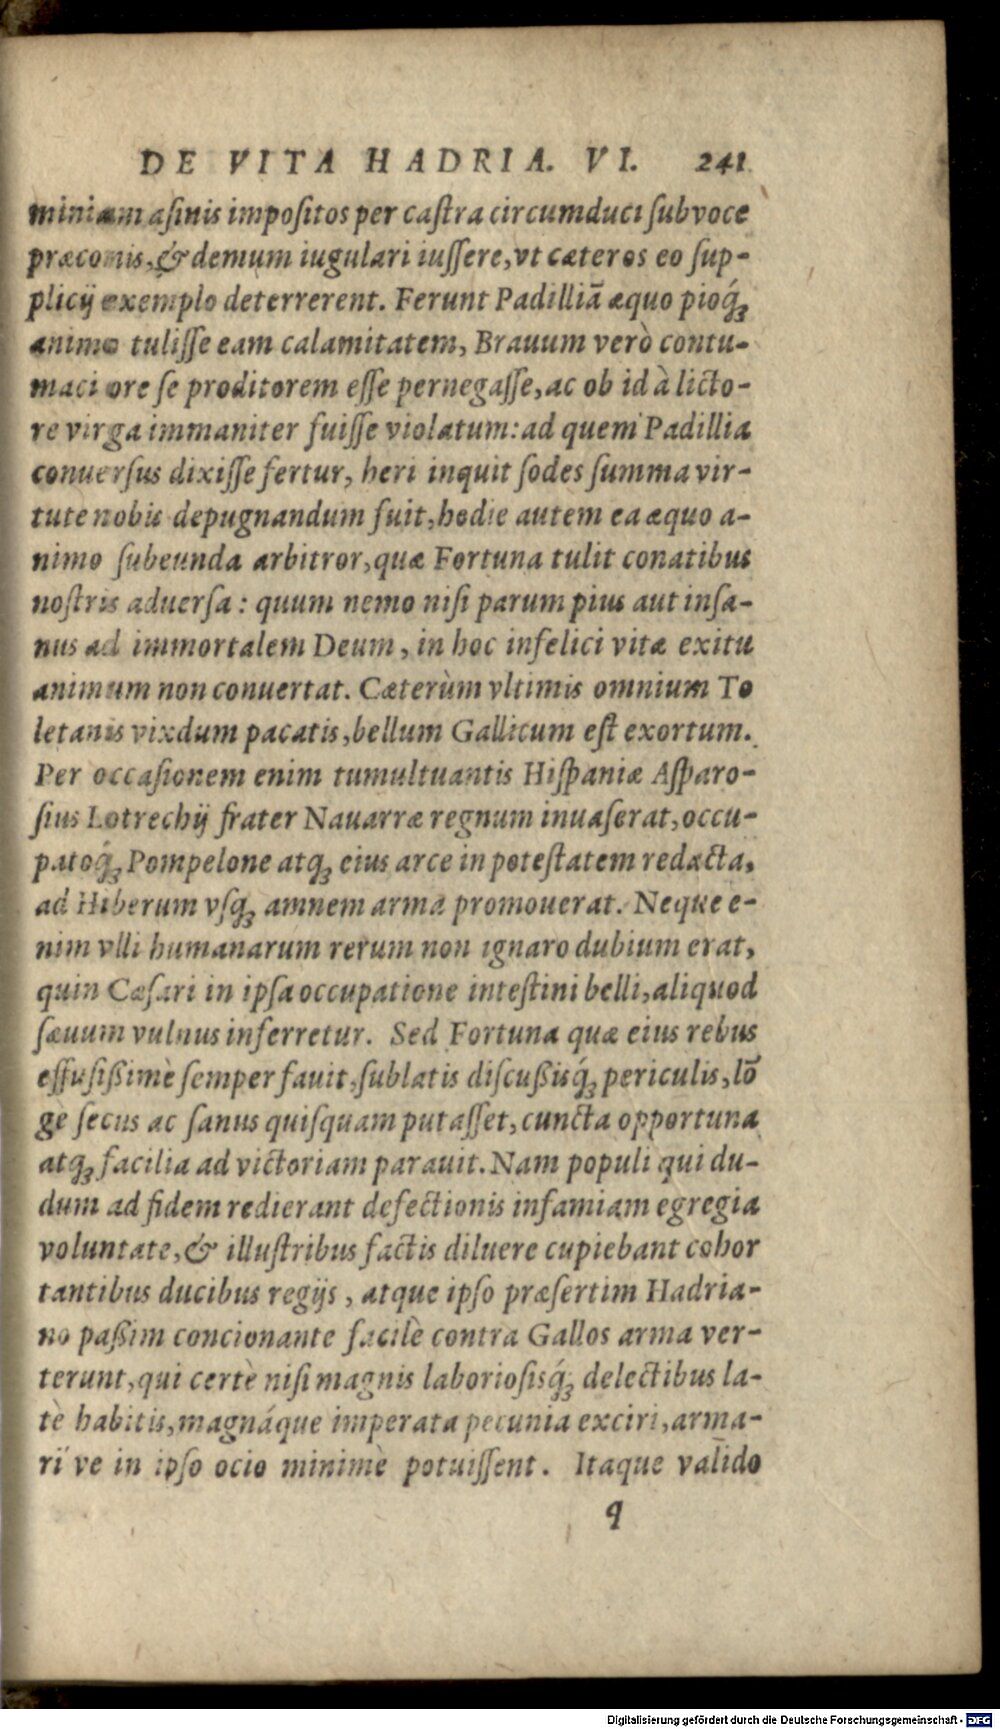 DE VITA HADRIA. VI. 241
miniam asinis impositos per castra circumduci sub voce
præconis, & demum iugulari iussere, vt cæteros eo sup-
plicij exemplo deterrerent. Ferunt Padilliā æquo pioq́ꝫ
animo tulisse eam calamitatem, Brauum verò contu-
maci ore se proditorem esse pernegasse, ac ob id à licto-
re virga immaniter fuisse violatum: ad quem Padillia
conuersus dixisse fertur, heri inquit sodes summa vir-
tute nobis depugnandum fuit, hodie autem ea æquo a-
nimo subeunda arbitror, quæ Fortuna tulit conatibus
nostris aduersa: quum nemo nisi parum pius aut insa-
nus ad immortalem Deum, in hoc infelici vitæ exitu
animum non conuertat. Cæterùm vltimis omnium To
letanis vixdum pacatis, bellum Gallicum est exortum.
Per occasionem enim tumultuantis Hispaniæ Asparo-
sius Lotrechij frater Nauarræ regnum inuaserat, occu-
patoq́ꝫ Pompelone atqꝫ eius arce in potestatem redacta,
ad Hiberum vsqꝫ amnem arma promouerat. Neque e-
nim vlli humanarum rerum non ignaro dubium erat,
quin Cæsari in ipsa occupatione intestini belli, aliquod
sæuum vulnus inferretur. Sed Fortuna quæ eius rebus
effusißimè semper fauit, sublatis discußisq́ꝫ periculis, lō
gè secus ac sanus quisquam putasset, cuncta opportuna
atqꝫ facilia ad victoriam parauit. Nam populi qui du-
dum ad fidem redierant defectionis infamiam egregia
voluntate, & illustribus factis diluere cupiebant cohor
tantibus ducibus regijs, atque ipso præsertim Hadria-
no paßim concionante facilè contra Gallos arma ver-
terunt, qui certè nisi magnis laboriosisq́ꝫ delectibus la-
tè habitis, magnáque imperata pecunia exciri, arma-
ri ve in ipso ocio minimè potuissent. Itaque valido
q
Digitalisierung gefördert durch die Deutsche Forschungsgemeinschaft - DFG